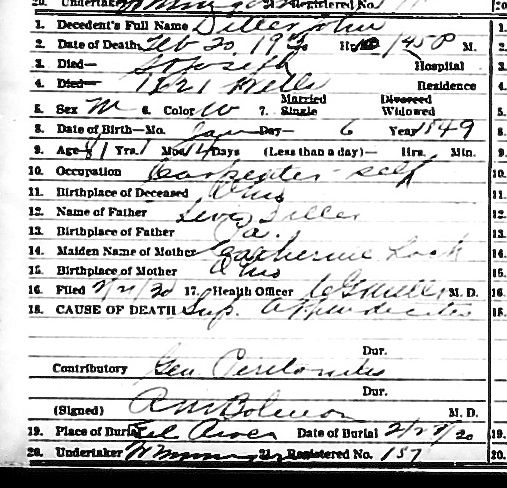 20. Undertaker Registered No.
1. Decedent's Full Name Diller John
2. Date of Death Feb 20, 1930 Hr. 1/45 P M.
3. Died— St Joseph Hospital
4. Died— 1621 Wells Residence
5. Sex M 6. Color W 7. Married Single Divorced Widowed
8. Date of Birth—Mo. Jan Day— 6 Year 1849
9. Age 81 Yrs. 1 Mos. 14 Days (Less than a day)— Hrs. Min.
10. Occupation Carpenter - self
11. Birthplace of Deceased Ohio
12. Name of Father Levi Diller
13. Birthplace of Father Pa.
14. Maiden Name of Mother Catherine Lock
15. Birthplace of Mother Ohio
16. Filed 2/21/30 17. Health Officer M. D.
18. CAUSE OF DEATH Sup. Appendicitis
Dur.
Contributory Gen Peritonitis
Dur.
(Signed) M. D.
19. Place of Burial Date of Burial
20. Undertaker 21. Registered No. 157